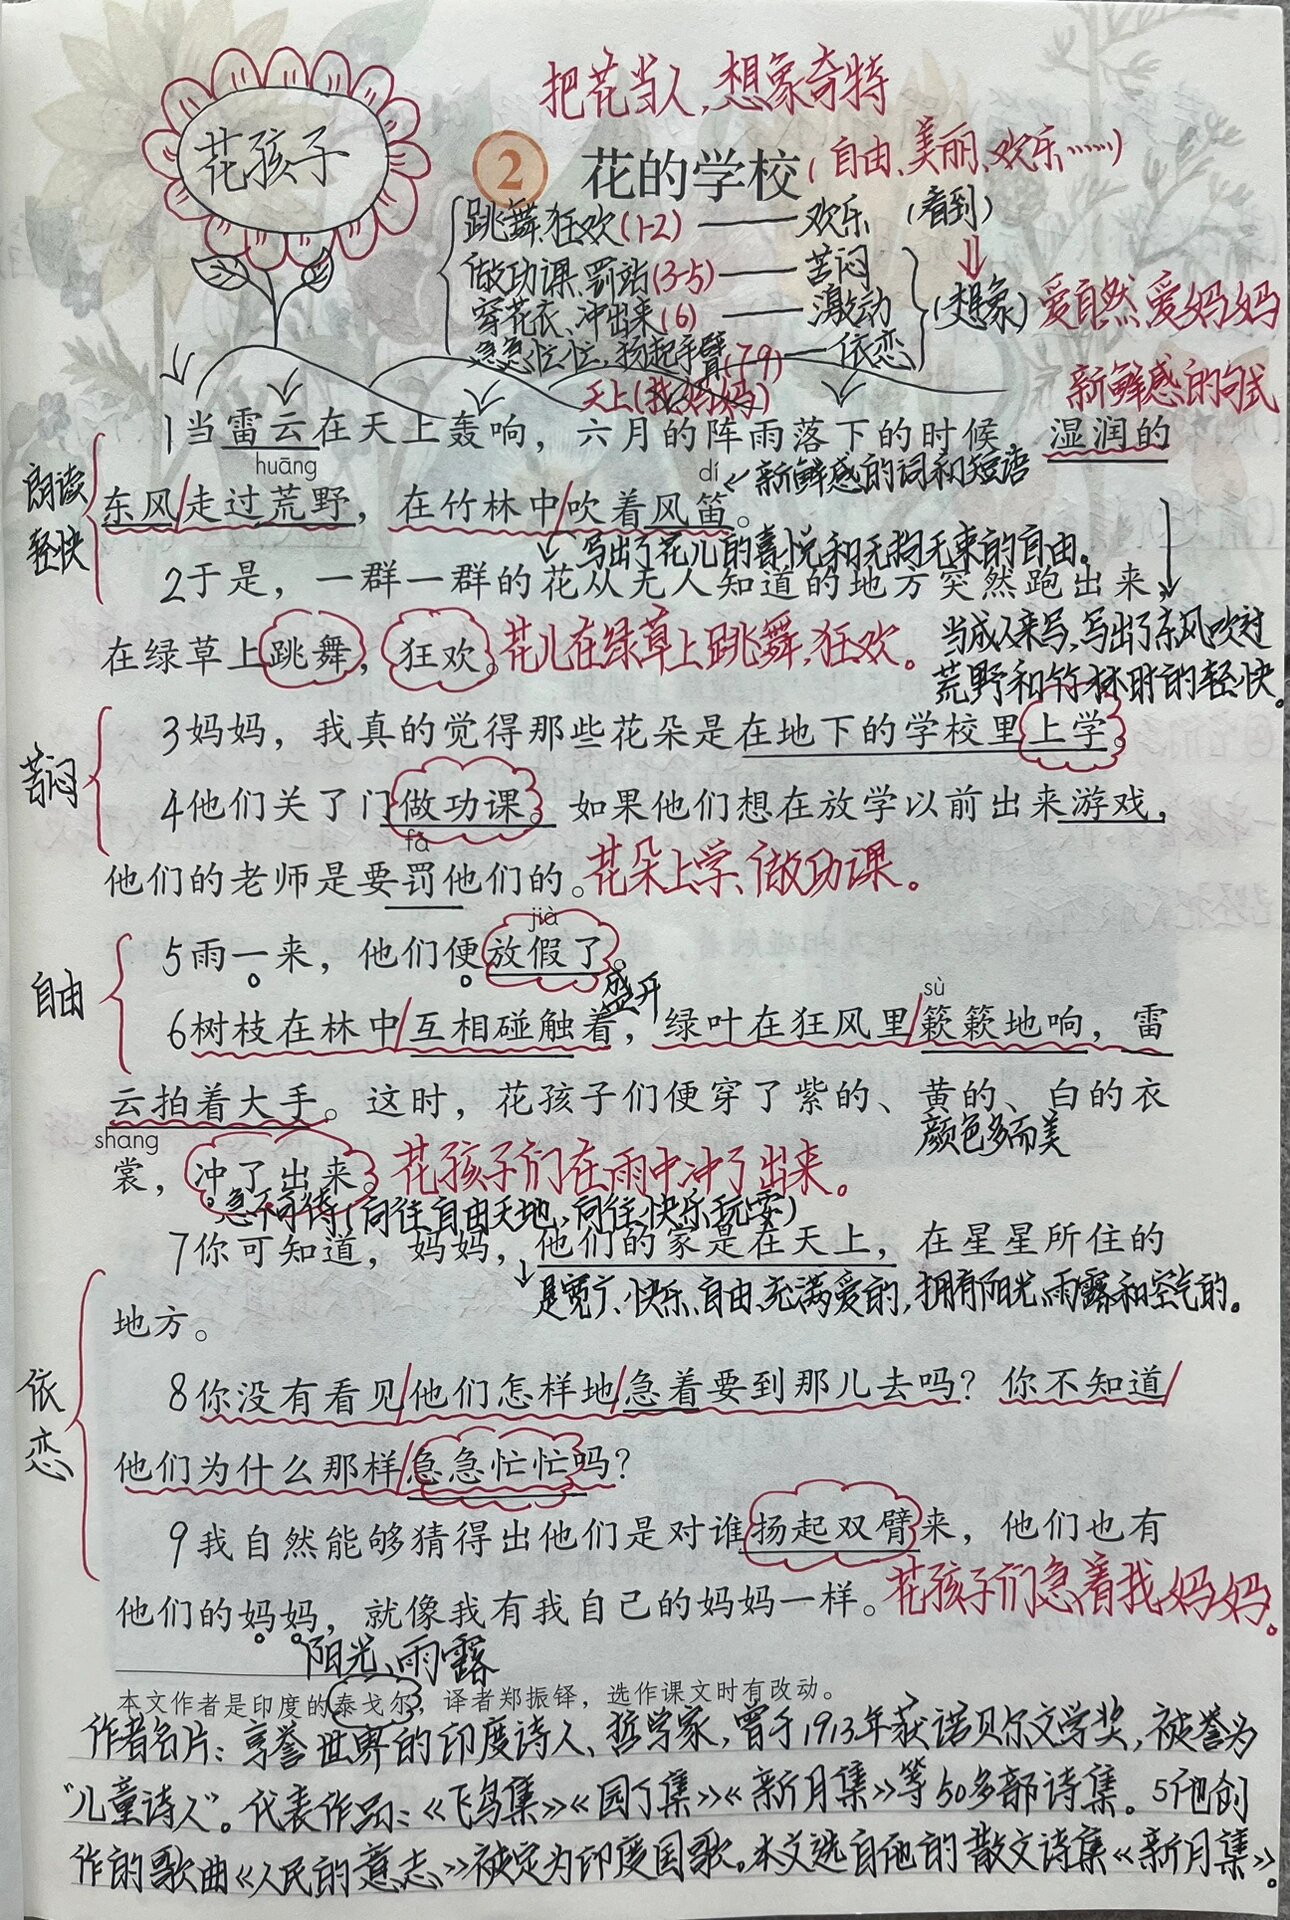 把花当人，想象奇特
花孩子
2 花的学校（自由、美丽、欢乐……）
跳舞、狂欢(1-2)——欢乐（看到）
做功课、罚站(3-5)——苦闷
穿花衣、冲出来(6)——激动（想象）爱自然、爱妈妈
急急忙忙，扬起手臂(7-9)——依恋
天上(找妈妈)
新鲜感的句式
1当雷云在天上轰响，六月的阵雨落下的时候，湿润的
huāng
dí
新鲜感的词和短语
朗读
轻快
东风/走过荒野，在竹林中/吹着风笛。
写出了花儿的喜悦和无拘无束的自由。
2于是，一群一群的花从无人知道的地方突然跑出来，
在绿草上跳舞，狂欢。花儿在绿草上跳舞，狂欢。
当成人来写，写出了东风吹过
荒野和竹林时的轻快。
3妈妈，我真的觉得那些花朵是在地下的学校里上学。
苦闷
4他们关了门做功课。如果他们想在放学以前出来游戏，
fá
他们的老师是要罚他们的。花朵上学、做功课。
jià
5雨一来，他们便放假了。
自由
盛开
sù
6树枝在林中/互相碰触着，绿叶在狂风里/簌簌地响，雷
云拍着大手。这时，花孩子们便穿了紫的、黄的、白的衣
颜色多而美
shang
裳，冲了出来。花孩子们在雨中冲了出来。
急不可待（向往自由天地，向往快乐玩耍）
7你可知道，妈妈，他们的家是在天上，在星星所住的
是宽广、快乐、自由、充满爱的，拥有阳光、雨露和空气的。
地方。
依恋
8你没有看见/他们怎样地/急着要到那儿去吗？你不知道/
他们为什么那样/急急忙忙吗？
9我自然能够猜得出他们是对谁扬起双臂来，他们也有
他们的妈妈，就像我有我自己的妈妈一样。花孩子们急着找妈妈。
阳光、雨露
本文作者是印度的泰戈尔，译者郑振铎，选作课文时有改动。
作者名片：享誉世界的印度诗人、哲学家，曾于1913年获诺贝尔文学奖，被誉为
“儿童诗人”。代表作品：《飞鸟集》《园丁集》《新月集》等50多部诗集。他创
作的歌曲《人民的意志》被定为印度国歌。本文选自他的散文诗集《新月集》。